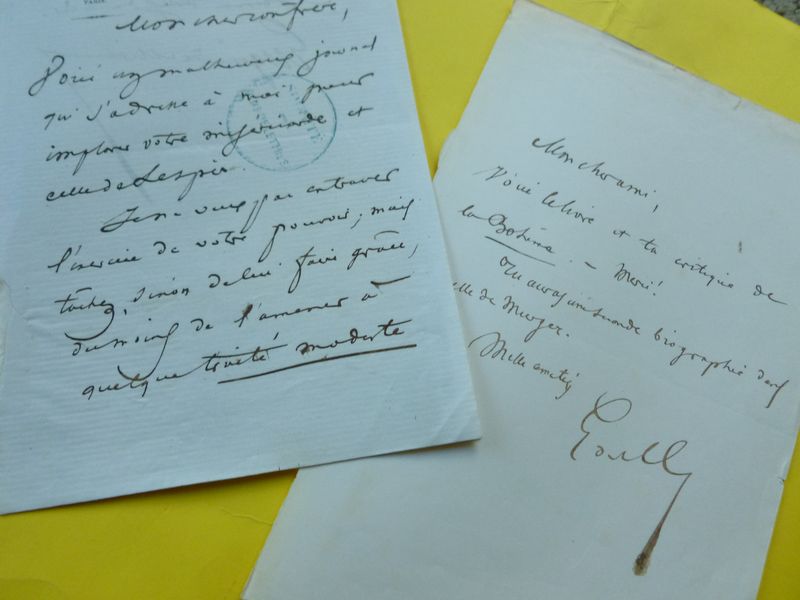 PARIS
Mon cher confrère,
Voici un malheureux journal
qui s'adresse à moi pour
implorer votre miséricorde et
celle de Lespès.
Je ne veux pas entraver
l'exercice de votre pouvoir, mais
tâchez, sinon de lui faire grâce,
du moins de l'amener à
quelque traité modeste
SOCIÉTÉ
Mon cher ami,
Voici le livre et ta critique de
la Bohême. - Merci!
Tu auras une seconde biographie dans
celle de Murger.
Mille amitiés